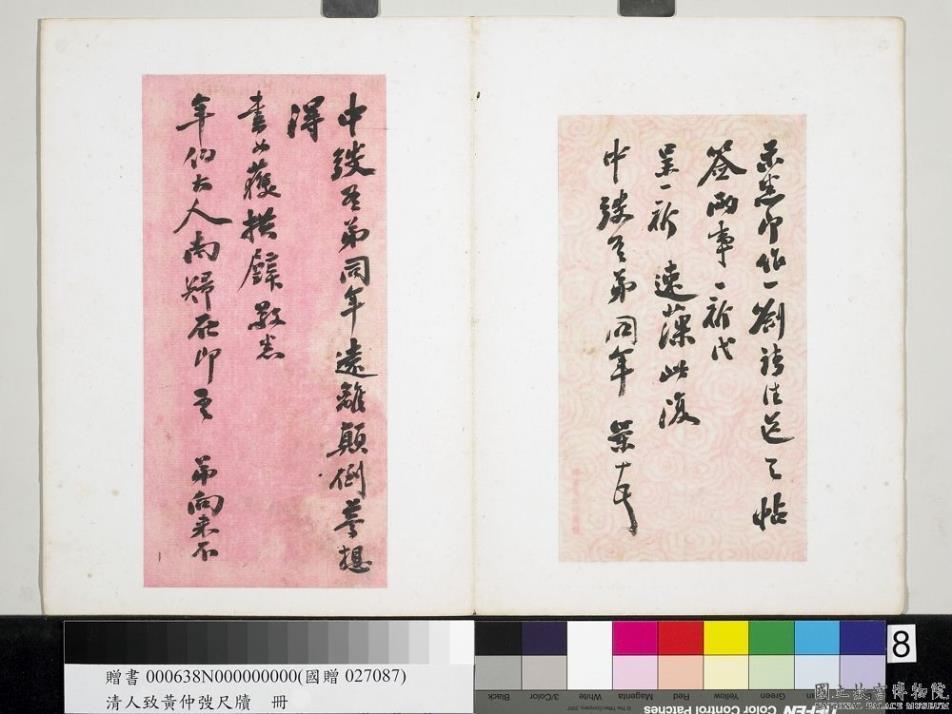 示悉即作一劄請法送之帖
簽兩事一祈代
呈一祈 速藻此復
中弢吾弟同年 榮
中弢吾弟同年遠離顛倒夢想
得
書如獲拱璧敬悉
年伯大人南歸在即 弟向來不
贈書 000638N000000000(國贈 027087)
清人致黃仲弢尺牘 冊
8
Black
3/Color
White
Magenta
Red
Yellow
Green
Cyan
Blue
TIFFEN Color Control Patches
© The Tiffen Company, 2007
國立故宮博物院
NATIONAL PALACE MUSEUM